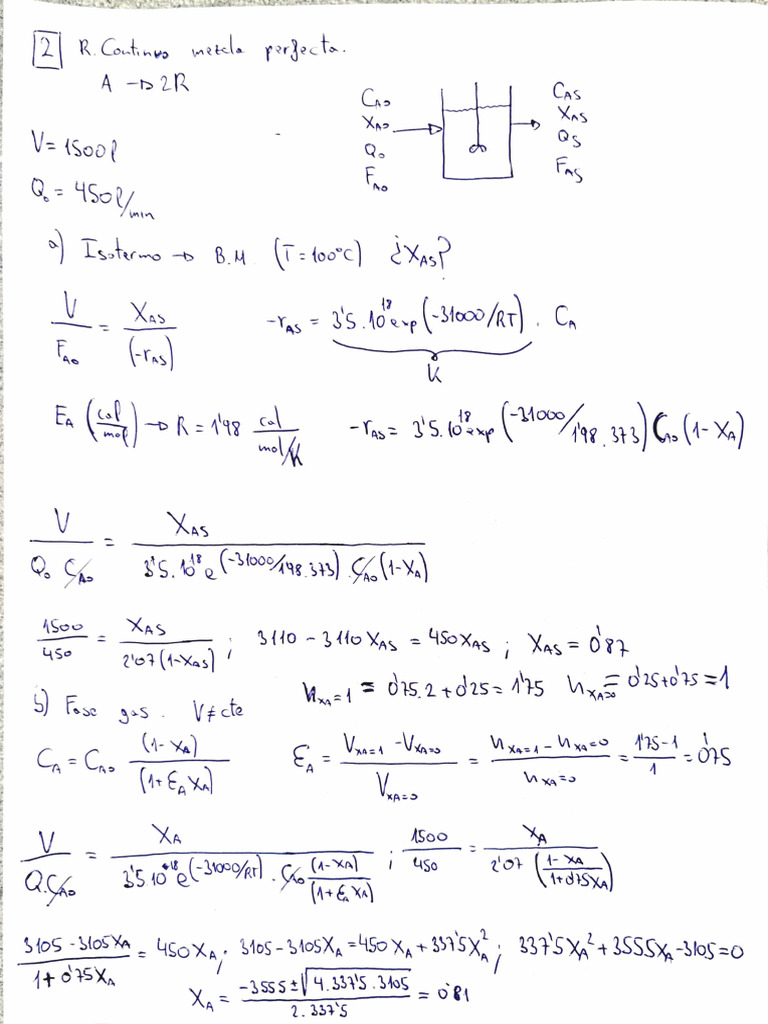 2 R. Continuo mezcla perfecta.
A → 2R
C_A0
X_A0
Q_0
F_A0
C_AS
X_AS
Q_S
F_AS
V = 1500 l
Q_0 = 450 l/min
a) Isotermo → B.M (T = 100°C) ¿X_AS?
V/F_A0 = X_AS/(-r_AS) -r_AS = 3'5.10^18 exp(-31000/RT) . C_A
K
E_A (cal/mol) → R = 1'98 cal/mol/K -r_AS = 3'5.10^18 exp(-31000/1'98.373) C_A0 (1-X_A)
V/(Q_0 C_A0) = X_AS/(3'5.10^18 e^(-31000/1'98.373) . C_A0 (1-X_A))
1500/450 = X_AS/(2'07(1-X_AS)) ; 3110 - 3110X_AS = 450X_AS ; X_AS = 0'87
n_XA=1 = 0'75.2 + 0'25 = 1'75 n_XA=0 = 0'25+0'75 = 1
b) Fase gas. V ≠ cte
C_A = C_A0 (1-X_A)/(1+Ɛ_A X_A) Ɛ_A = (V_XA=1 - V_XA=0)/V_XA=0 = (n_XA=1 - n_XA=0)/n_XA=0 = (1'75-1)/1 = 0'75
V/(Q.C_A0) = X_A/(3'5.10^18 e^(-31000/RT) . C_A0 (1-X_A)/(1+Ɛ_A X_A)) ; 1500/450 = X_A/(2'07 ((1-X_A)/(1+0'75X_A)))
(3105-3105X_A)/(1+0'75X_A) = 450X_A ; 3105-3105X_A = 450X_A + 337'5X_A^2 ; 337'5X_A^2 + 3555X_A - 3105 = 0
X_A = (-3555 ± √(4.337'5.3105))/(2.337'5) = 0'81